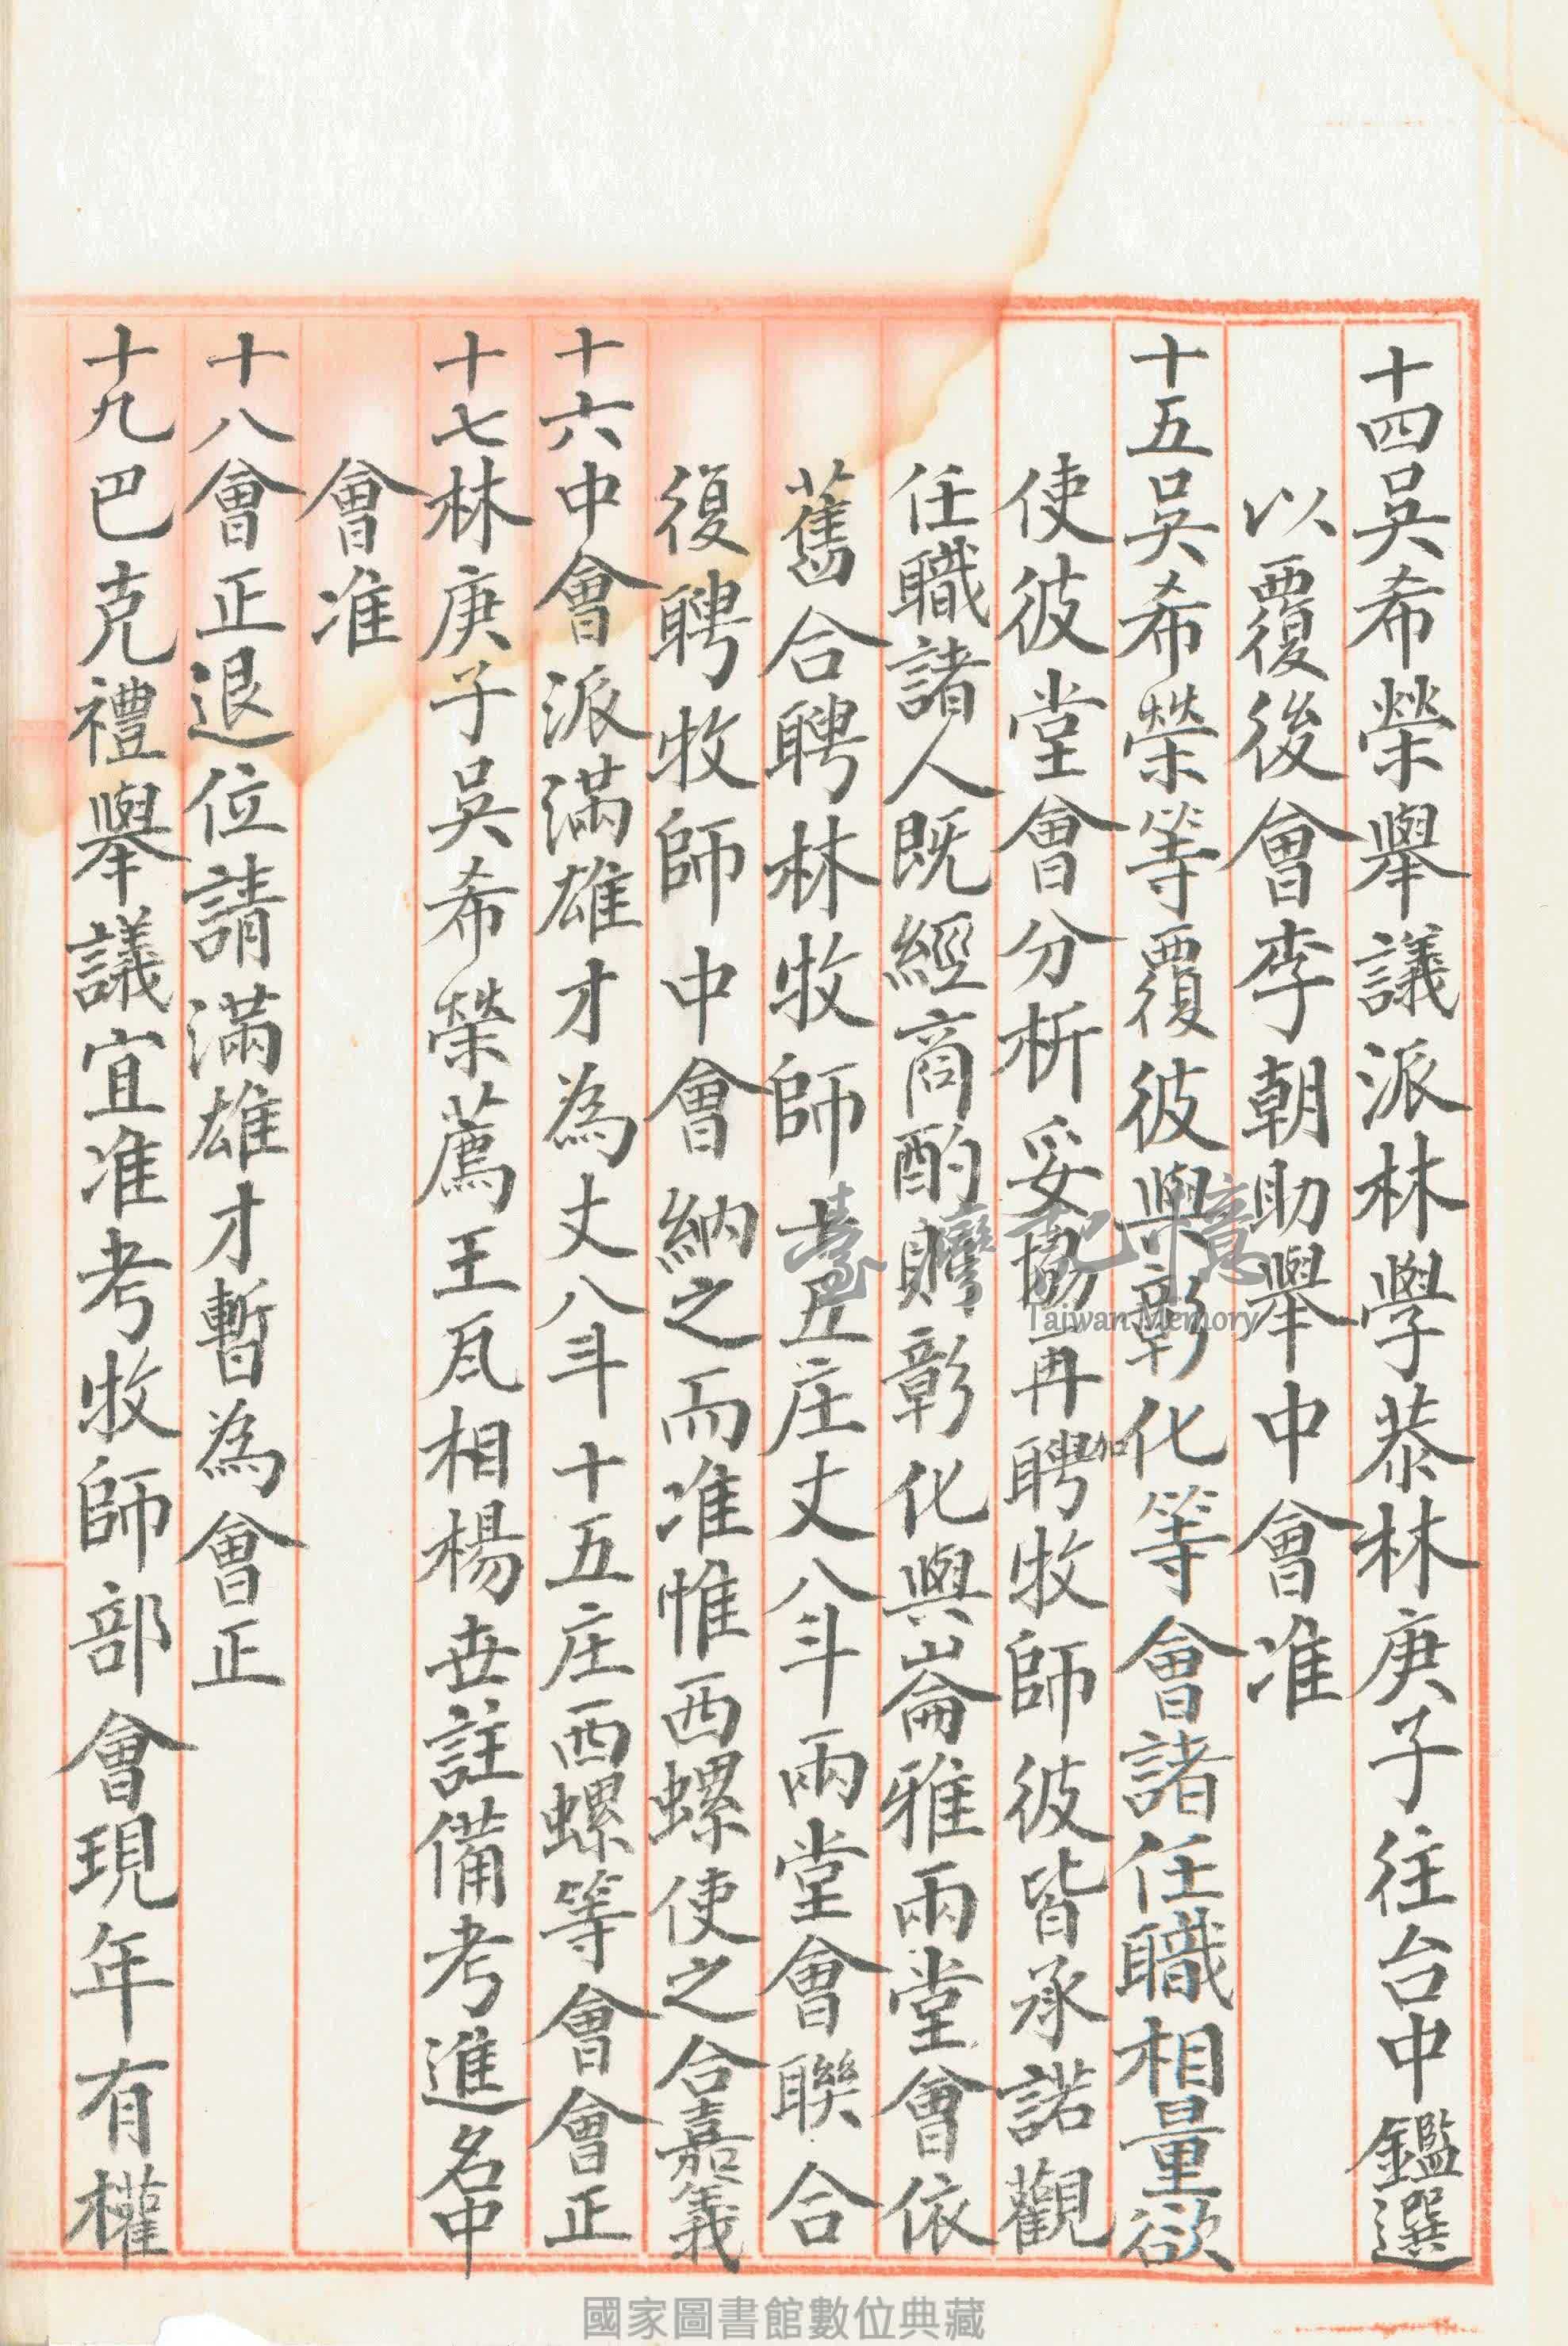 十四吳希榮舉議派林學恭林庚子往台中鑑選
以覆後會李朝助舉中會准
十五吳希榮等覆彼與彰化等會諸任職相量欲
使彼堂會分析妥協再聘牧師彼皆承諾觀
任職諸人既經商酌彰化與崙雅兩堂會依
舊合聘林牧師 五庄丈八斗兩堂會聯合
復聘牧師中會納之而准惟西螺使之合嘉義
十六中會派滿雄才為丈八斗十五庄西螺等會會正
十七林庚子吳希榮薦王瓦相楊世註備考進名中
會准
十八會正退位請滿雄才暫為會正
十九巴克禮舉議宜准考牧師部會現年有權
臺灣記憶
Taiwan Memory
國家圖書館數位典藏